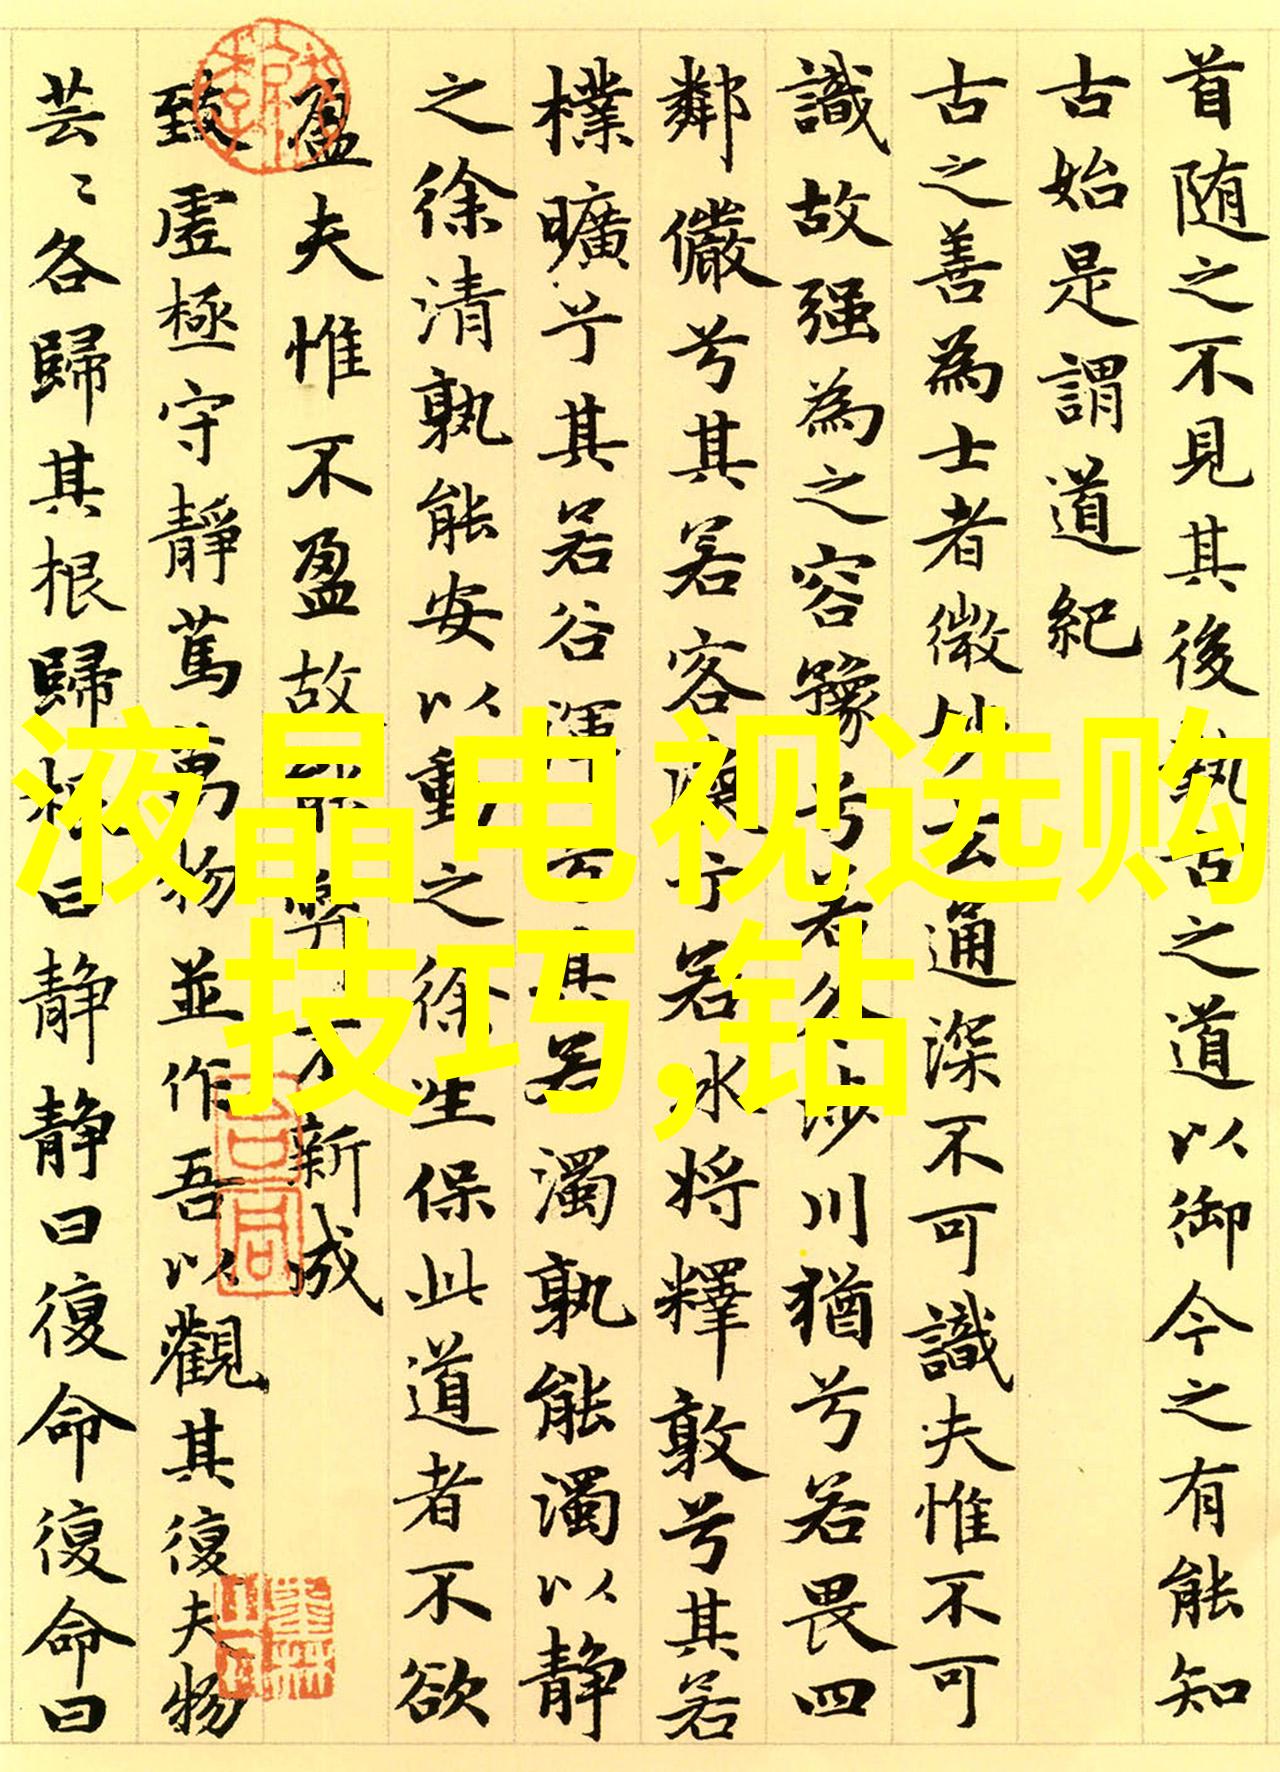 首随之不見其後執古之道以御今之有能知
古始是謂道紀
古之善為士者微妙玄通深不可識夫惟不可
識故强為之容豫兮若冬涉川猶兮若畏四
鄰儼兮其若客渙兮若冰将釋敦兮其若
樸曠兮其若谷渾兮其若濁孰能濁以静
之徐清孰能安以動之徐生保此道者不欲
盈夫惟不盈故能弊不新成
致虛極守靜篤萬物並作吾以觀其復夫物
芸〻各歸其根歸根曰静静曰復命復命曰
液晶电视选购
技巧,钻